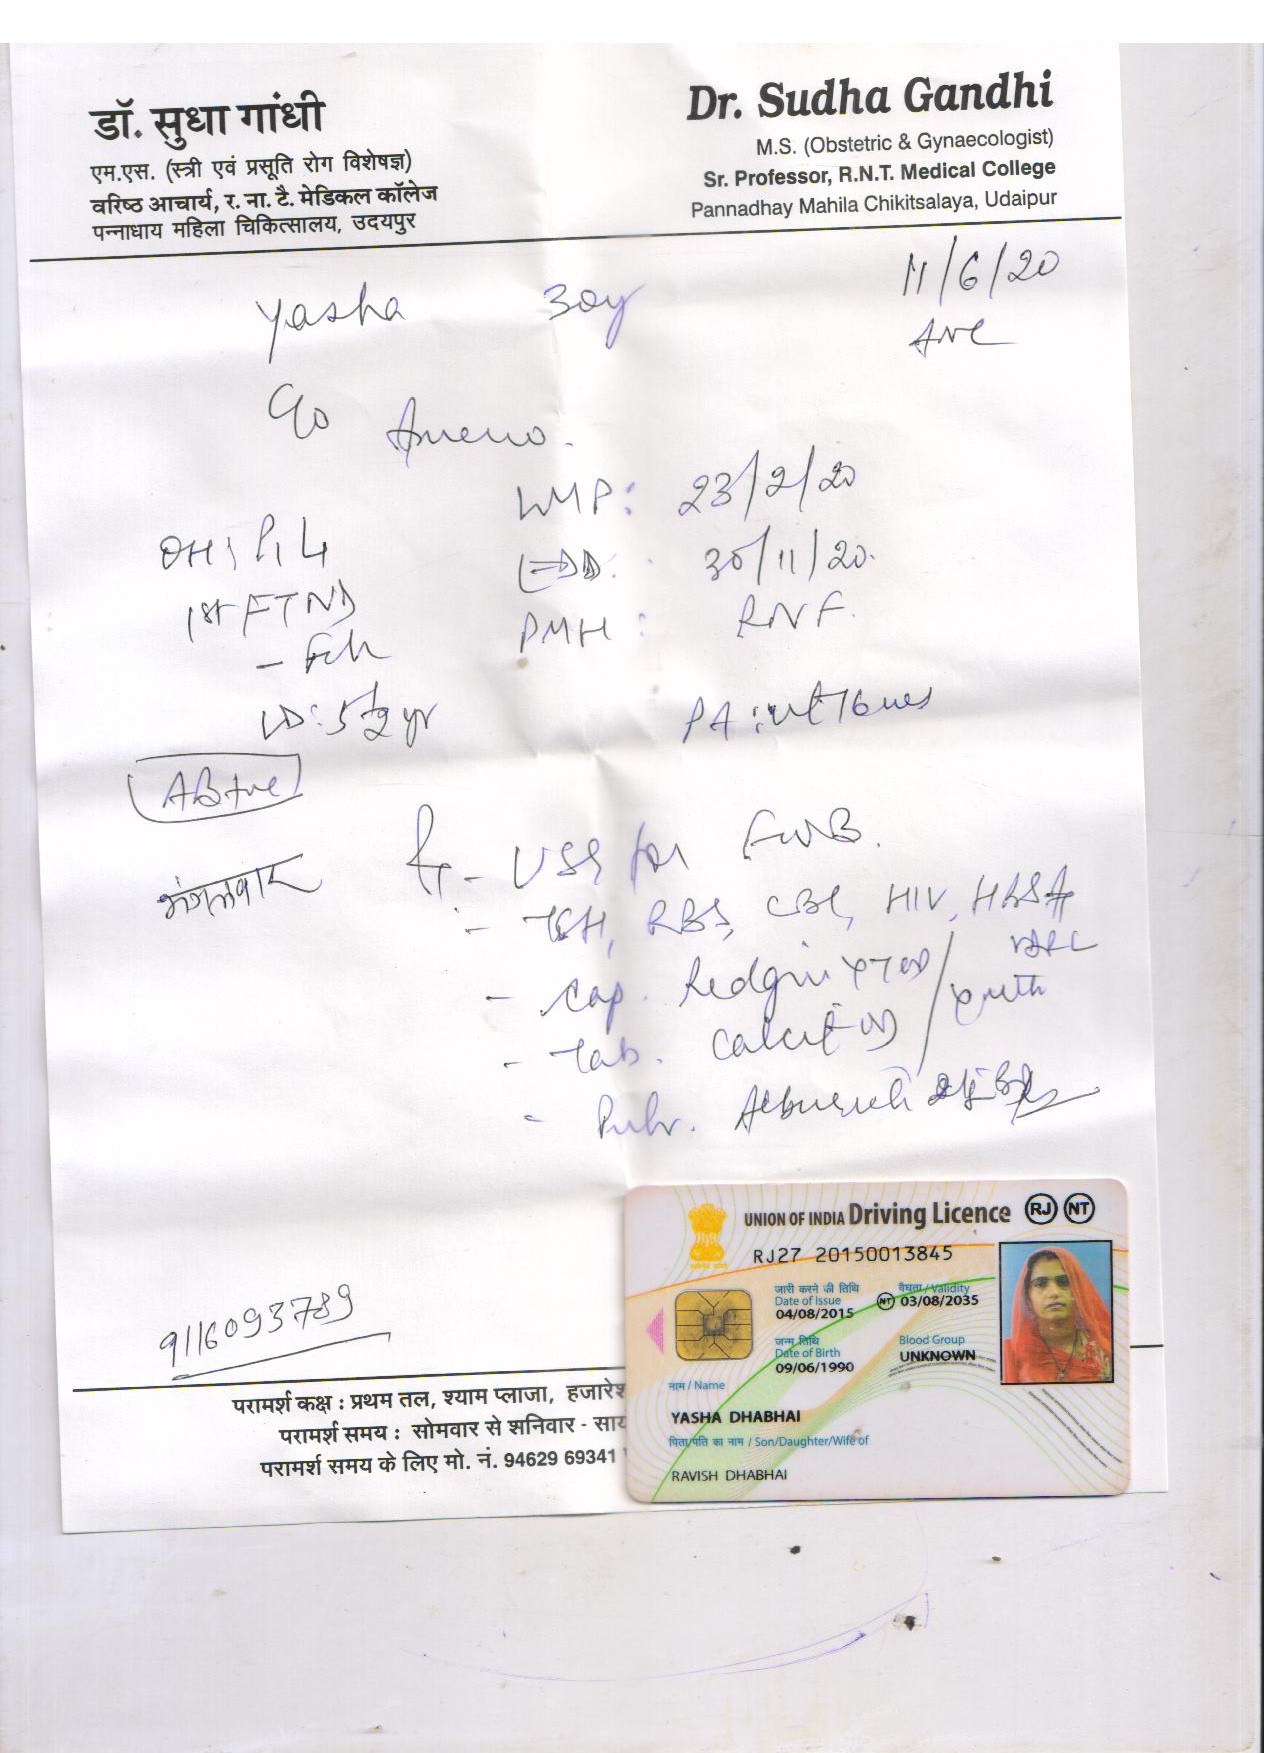 डॉ. सुधा गांधी
एम.एस. (स्त्री एवं प्रसूति रोग विशेषज्ञ)
वरिष्ठ आचार्य, र. ना. टै. मेडिकल कॉलेज
पन्नाधाय महिला चिकित्सालय, उदयपुर
Dr. Sudha Gandhi
M.S. (Obstetric & Gynaecologist)
Sr. Professor, R.N.T. Medical College
Pannadhay Mahila Chikitsalaya, Udaipur
11/6/20
Yasha 30y
ANC
C/o
LMP: 23/2/20
OH: P1 L1
EDD: 30/11/20.
1st FTND
PMH: RNF.
- Fch
LD: 5 1/2 yr
PA: ut 16 wks
AB+ve
मंगलवार
- USG for FWB.
- TSH, RBS, CBC, HIV, HBSA
- Cap.
- Tab.
-
9116093789
परामर्श कक्ष : प्रथम तल, श्याम प्लाजा, हजारेश
परामर्श समय : सोमवार से शनिवार - साय
परामर्श समय के लिए मो. नं. 94629 69341
UNION OF INDIA Driving Licence RJ NT
RJ27 20150013845
जारी करने की तिथि वैधता / Validity
Date of Issue NT 03/08/2035
04/08/2015
जन्म तिथि Blood Group
Date of Birth UNKNOWN
09/06/1990
नाम / Name
YASHA DHABHAI
पिता/पति का नाम / Son/Daughter/Wife of
RAVISH DHABHAI